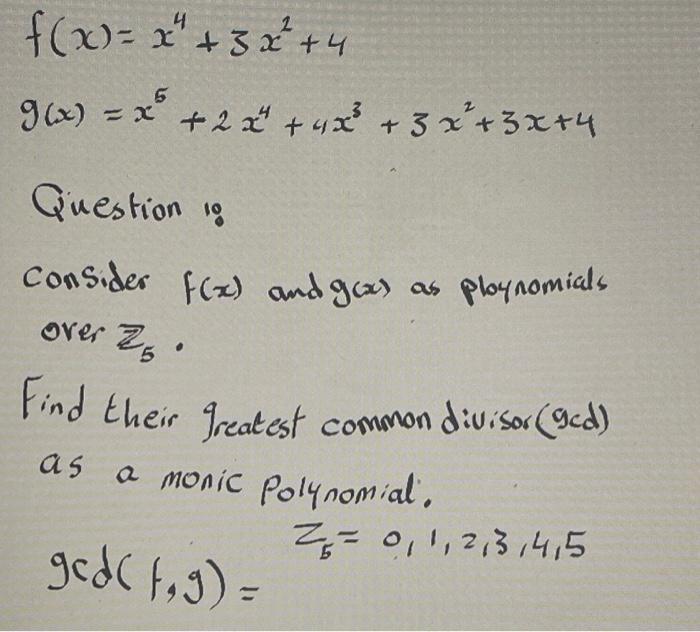 f(x) = x⁴ + 3x² + 4
g(x) = x⁵ + 2x⁴ + 4x³ + 3x² + 3x + 4
Question 1:
consider f(x) and g(x) as ploynomials
over Z₅.
Find their greatest common divisor (gcd)
as a monic polynomial.
Z₅ = 0,1,2,3,4,5
gcd(f,g) =